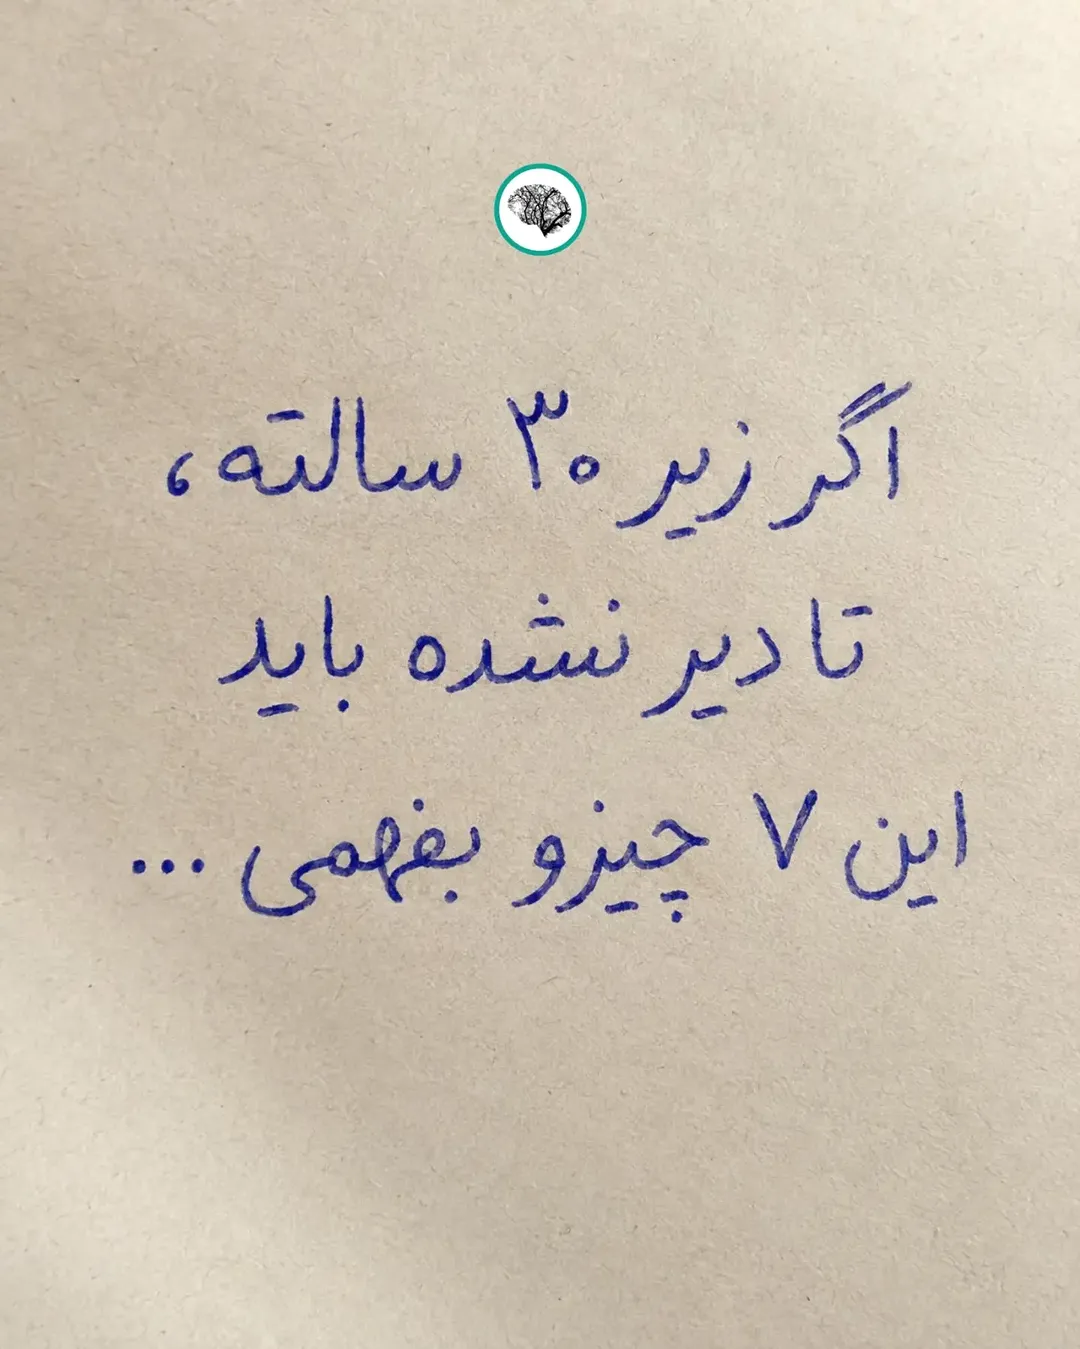 اگر زیر ۳۰ سالته،
تا دیر نشده باید
این ۷ چیزو بفهمی ...